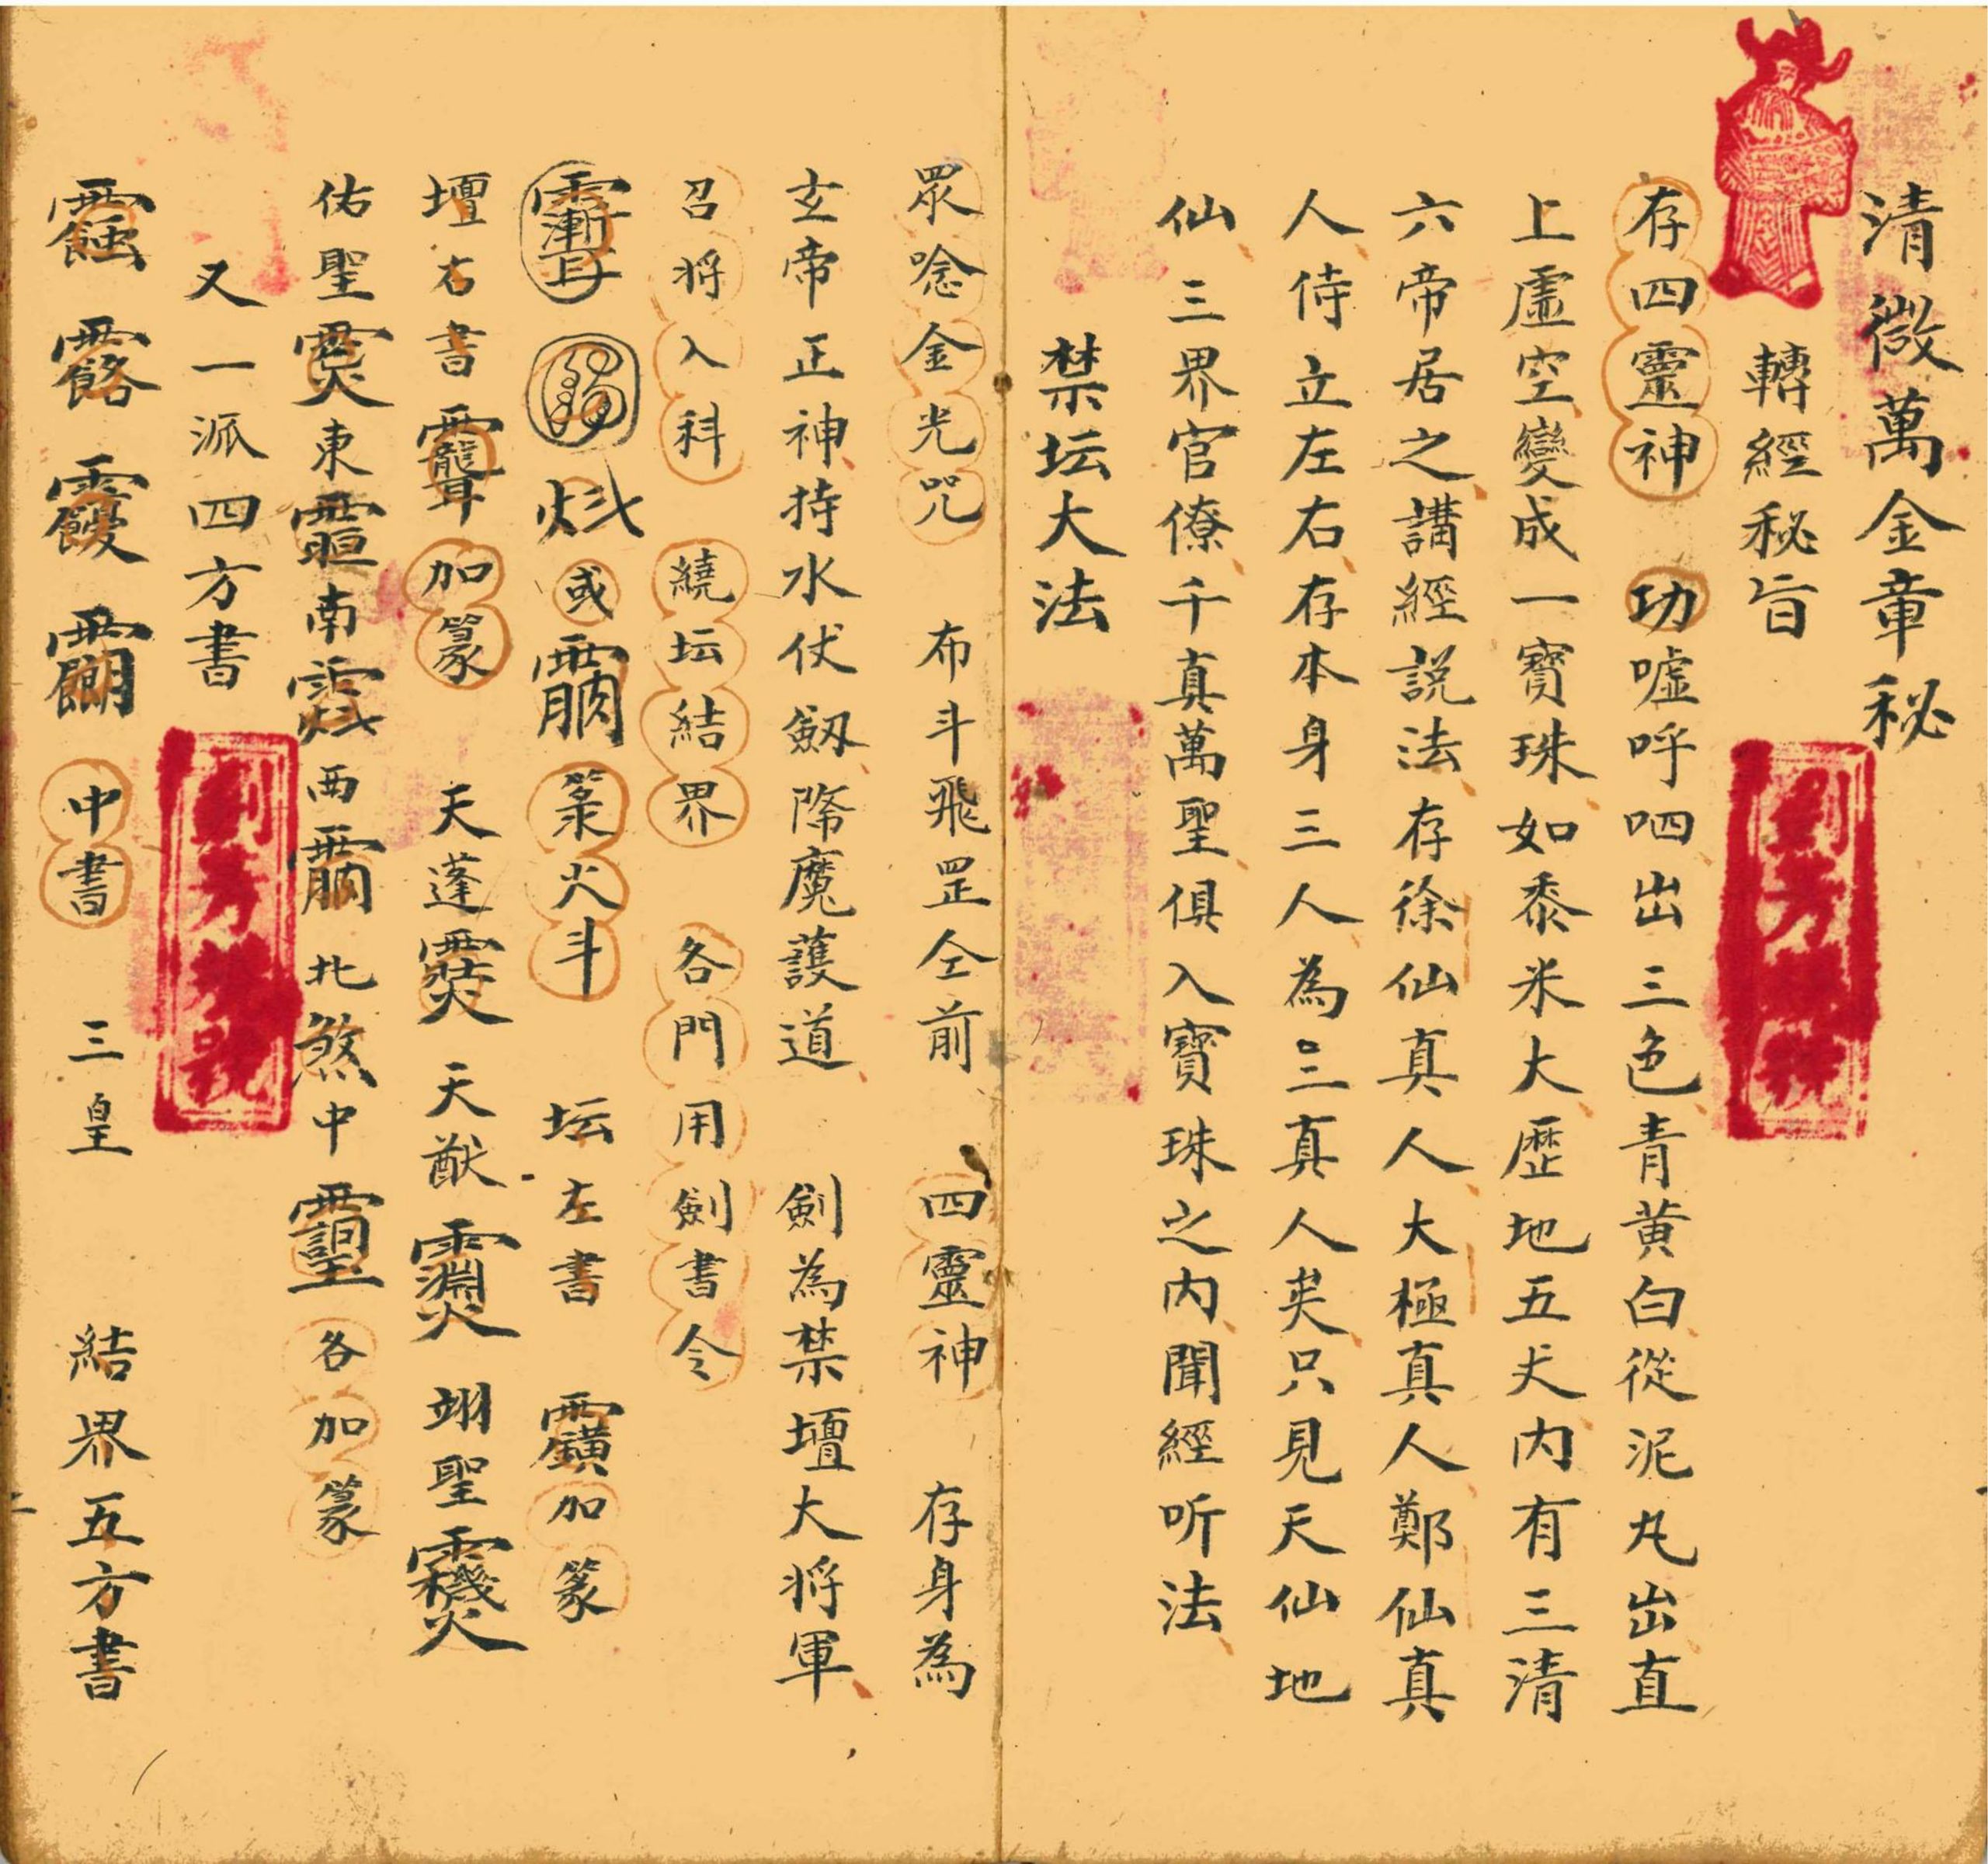 清微萬金章秘
轉經秘旨
存四靈神 功噓呼呬出三色青黄白從泥丸出直
上虛空變成一寶珠如黍米大歷地五丈内有三清
六帝居之講經説法存徐仙真人大極真人鄭仙真
人侍立左右存本身三人為三真人矣只見天仙地
仙三界官僚千真萬聖俱入寶珠之内聞經听法
禁坛大法
眾唸金光咒 布斗飛罡仝前 四靈神 存身為
玄帝正神持水伏劔降魔護道 劍為禁壇大将軍
召将入科 繞坛結界 各門用劍書令
或 篆火斗 坛左書 加篆
壇右書 加篆 天蓬 天猷 翊聖
佑聖 東 南 西 北煞中 各加篆
又一派四方書
中書 三皇 結界五方書